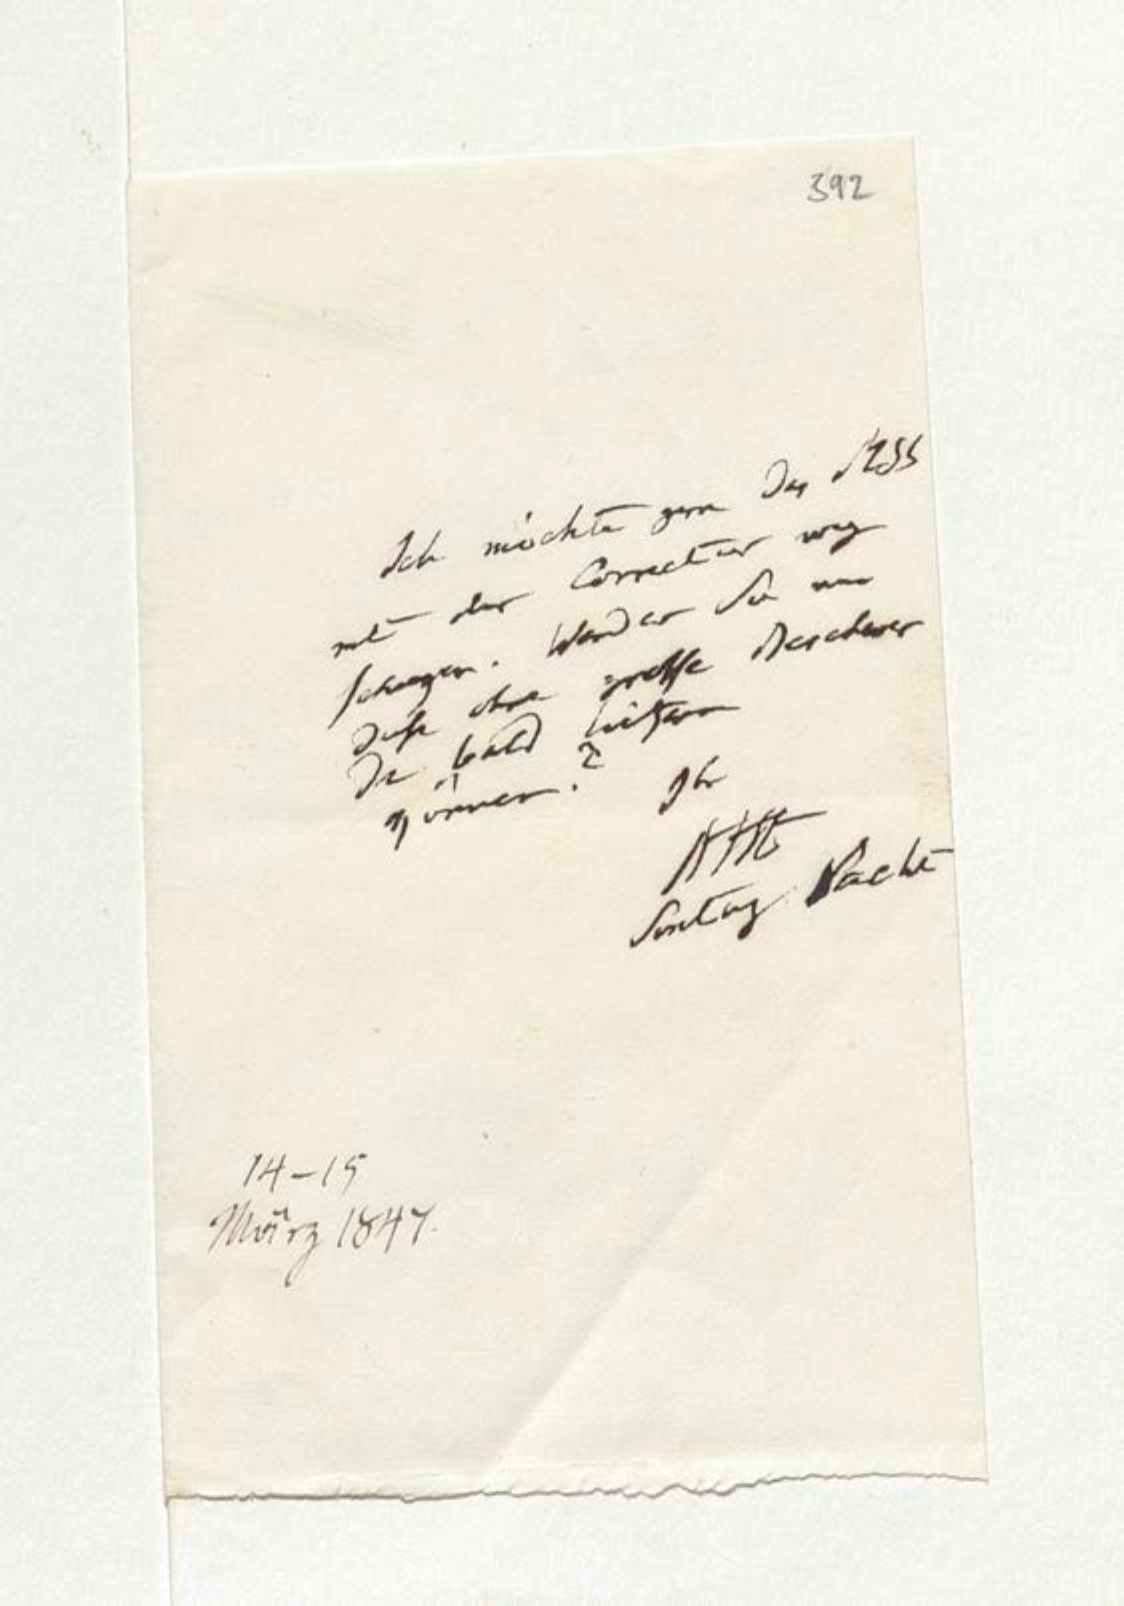 392
Ich möchte gern das MSS
mit der Correctur weg
schicken. Werden Sie mir
dieß ohne große Beschwer
de bald leisten
können?
Ihr
AHt
Sontag Nacht
14–15
März 1847.